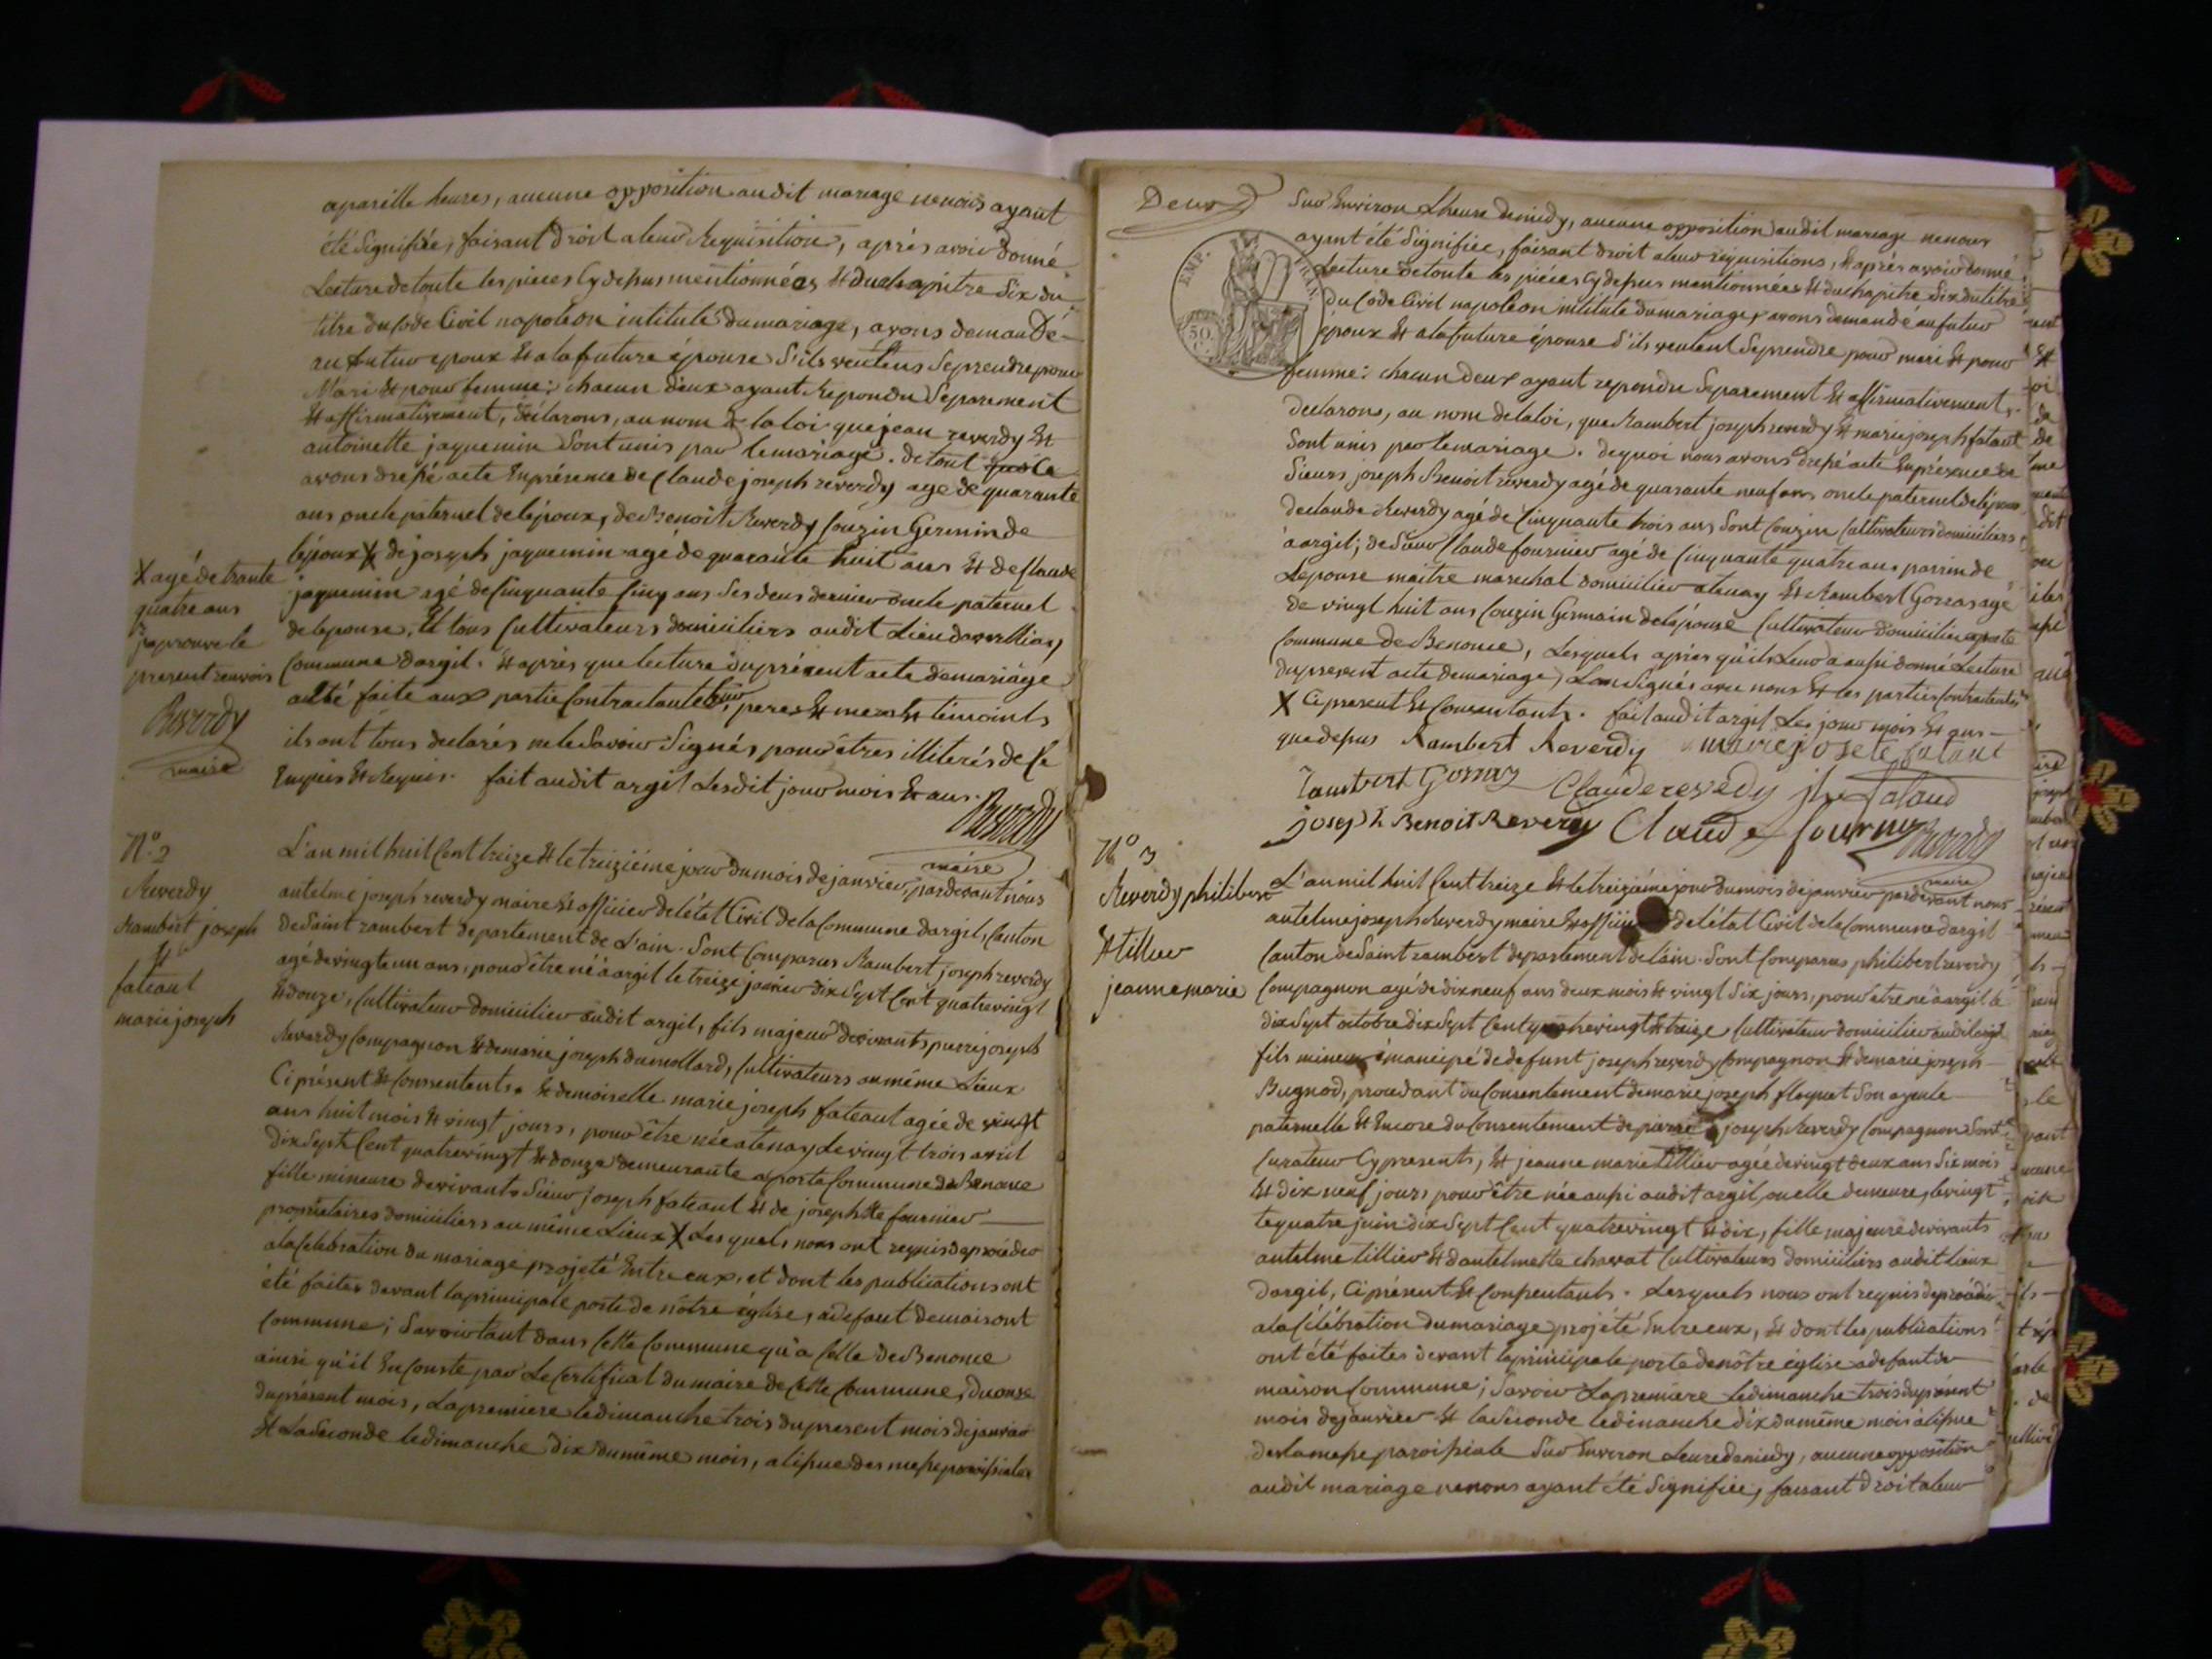 apareille heures, aucune opposition audit mariage nenous ayant
été Signifiée, faisant droit aleur Requisition, après avoir donné
Lecture detoute les pieces Cy depus mentionnées Et duchapitre Six du
titre du Code Civil napoleon intitulé dumariage, avons demandé
au futur epoux Et alafuture épouse S'ils veulens Seprendre pour
Mari Et pour femme; chacun deux ayant Repondu Separement
Et affirmativement, déclarons, au nom de la loi que jean reverdy Et
antoinette jaquemin Sont unis par lemariage. detout
avons drepé acte Enprésence de Claude joseph reverdy age de quarante
ans oncle paternel delépoux, de Benoit Reverdy Couzin Germin de
lépoux X de joseph jaquemin agé de quarante huit ans Et de Claude
jaquemin agé de Cinquante Cinq ans Ses deus dernier oncle paternel
de lepouse, Et tous Cultivateurs domiciliers audit Lieu
Commune dargil. Et après que lecture duprésent acte demariage
a été faite aux partie Contractante leur, peres Et meres Et témoints
ils ont tous declarés ne le Savoir Signés pour êtres illiterés de Ce
Enquis Et Requis. fait audit argil Lesdit jour mois Et ans.
Reverdy
maire
X agé de trante
quatre ans
japrouve le
present renvois
Reverdy
maire
N.º 2
Reverdy
Rambert joseph
Et
fateaut
marie joseph
L'an mil huit Cent treize Et le treiziéme jour dumois dejanvier, pardevant nous
antelme joseph reverdy maire Et officier delétat Civil delaCommune dargil, Canton
deSaint rambert departement de L'ain. Sont Comparus Rambert joseph reverdy
agé devingt un ans, pour être né à argil le treize janvier dix Sept Cent quatrevingt
Et douze, Cultivateur domicilier audit argil, fils majeur devivants pierre joseph
Reverdy Compagnon Et demarie joseph dumollard, Cultivateurs au même Lieux
Ci présent Et Consentents. Et demoiselle marie joseph fateaut agée de vingt
ans huit mois Et vingt jours, pour être née atenay Le vingt trois avril
dix Sept Cent quatrevingt Et douze demeurante aporte Commune de Benonce
fille mineure devivants Sieur joseph fateaut Et de josephtte fournier
proprietaires domiciliers au même Lieux X Lesquels nous ont requis de procéder
àlaCelebration du mariage projeté Entre eux, et dont les publications ont
été faites devant laprincipale porte de nôtre église, adefaut demaisont
Commune; Savoir tant dans Cette Commune qu'a Celle de Benonce
ainsi qu'il En Conste par Le Certificat du maire de Cette Commune, du onze
duprésent mois, Lapremiere ledimanche trois dupresent mois dejanvier
Et LaSeconde ledimanche dix dumême mois, alipue des mepe paroipiale
Deux
EMP. FRAN.
50
Sur Environ Lheure demidy, aucune opposition audit mariage nenous
ayant été Signifiée, faisant droit aleur réquisitions, Et après avoir donné
Lecture detoute les pieces Cy depus mentionnées Et duchapitre Six dutitre
du Code Civil napoleon intitulé dumariage, avons demandé aufutur
époux Et alafuture épouse S'ils veulent Seprendre pour mari Et pour
femme: chacun deux ayant repondu Separement Et affirmativement,
declarons, au nom delaloi, que Rambert joseph reverdy Et marie joseph fateaut
Sont unis par lemariage. dequoi nous avons drepé acte Enprésence de
Sieurs joseph Benoit reverdy agé de quarante neuf ans oncle paternel delépoux
declaude Reverdy agé de Cinquante trois ans Sont Couzin Cultivateurs domiciliers
à argil; de Sieur Claude fournier agé de Cinquante quatre ans parrin de
Lepouse maitre marechal domicilier atenay Et Rambert Gorras agé
de vingt huit ans Couzin Germain delépouse Cultivateur domicilier aporte
Commune de Benonce, Lesquels après qu'ils Leur a aupi donné Lecture
dupresent acte demariage, Lon Signés avec nous Et les parties Contractantes
X Ci present Et Consentants. fait audit argil Les jour mois Et ans
que depus Rambert Reverdy marie josete fataut
Rambert Gorras Claude revedy jh Fataud
joseph Benoit Reverdy Claude fournier Reverdy
maire
Nº 3
Reverdy philibert
Et tillier
jeanne marie
L'an mil huit Cent treize Et le treiziéme jour dumois dejanvier pardevant nous
antelme joseph Reverdy maire Et officier delétat Civil delaCommune dargil
Canton deSaint rambert departement delain. Sont Comparus philibert reverdy
Compagnon agé de dix neuf ans deux mois Et vingt Six jours, pour être né à argil le
dix Sept octobre dix Sept Cent quatrevingt Et treize Cultivateur domicilier audit argil
fils mineur émancipé de defunt joseph reverdy Compagnon Et demarie joseph
Bugnod, procedant du Consentement demarie joseph floquet Son ayeule
paternelle Et Encore du Consentement de pierre joseph Reverdy Compagnon Sont
Curateur Cy presents, Et jeanne marie tillier agée devingt deux ans Six mois
Et dix neuf jours pour être née aupi audit argil, ou elle demeure, levingt
quatre juin dix Sept Cent quatrevingt Et dix, fille majeure devivants
antelme tillier Et dantelmette charvat Cultivateurs domiciliers audit lieux
Dargil, Ci présent Et Consentants. Lesquels nous ont requis deprocéder
alaCélébration dumariage projété Entre eux, Et dont les publications
ont été faites devant laprincipale porte denôtre église adefaut de
maison Commune; Savoir Lapremiere ledimanche trois duprésent
mois dejanvier Et laSeconde ledimanche dix dumême mois àlipue
delamepe paroipiale Sur Environ Leure demidy, aucune opposition
audit mariage nenous ayant été Signifiée, faisant droit aleur